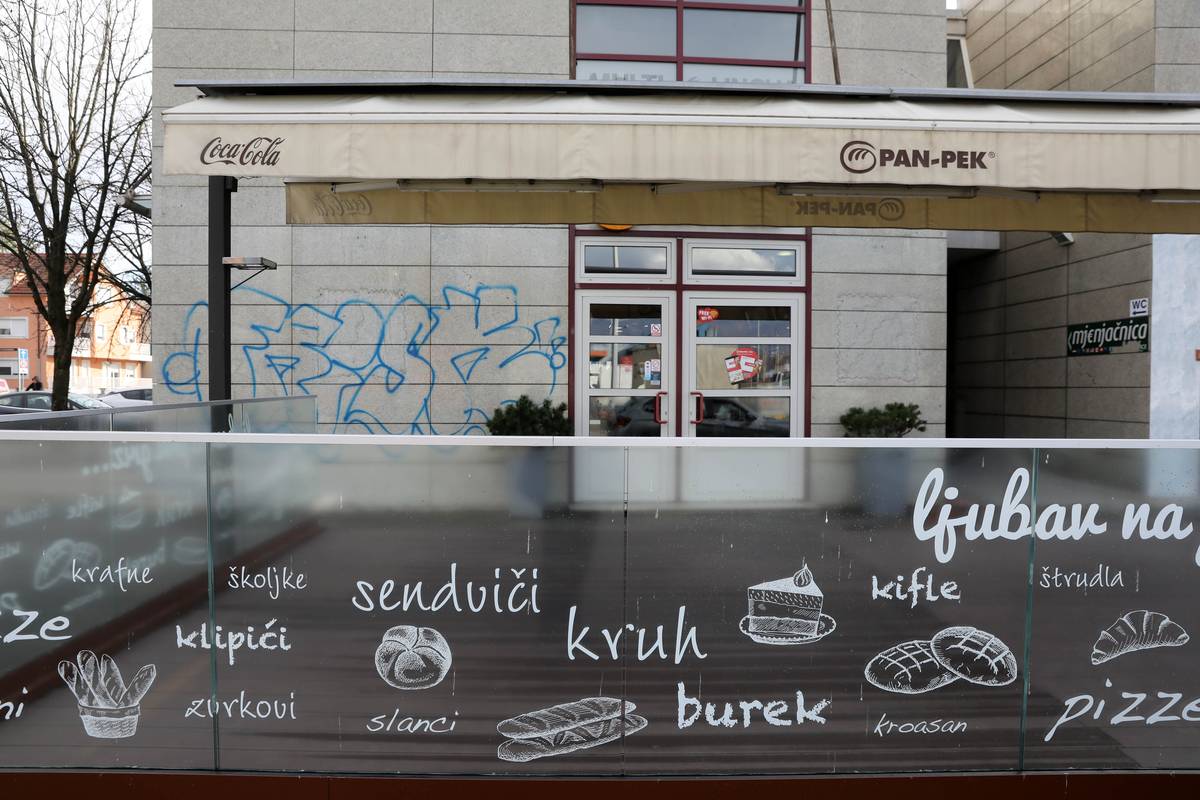 Coca-Cola
PAN-PEK®
WC
mjenjačnica
ljubav na
krafne
školjke
sendviči
kifle
štrudla
klipići
kruh
žurkovi
slanci
burek
kroasan
pizze